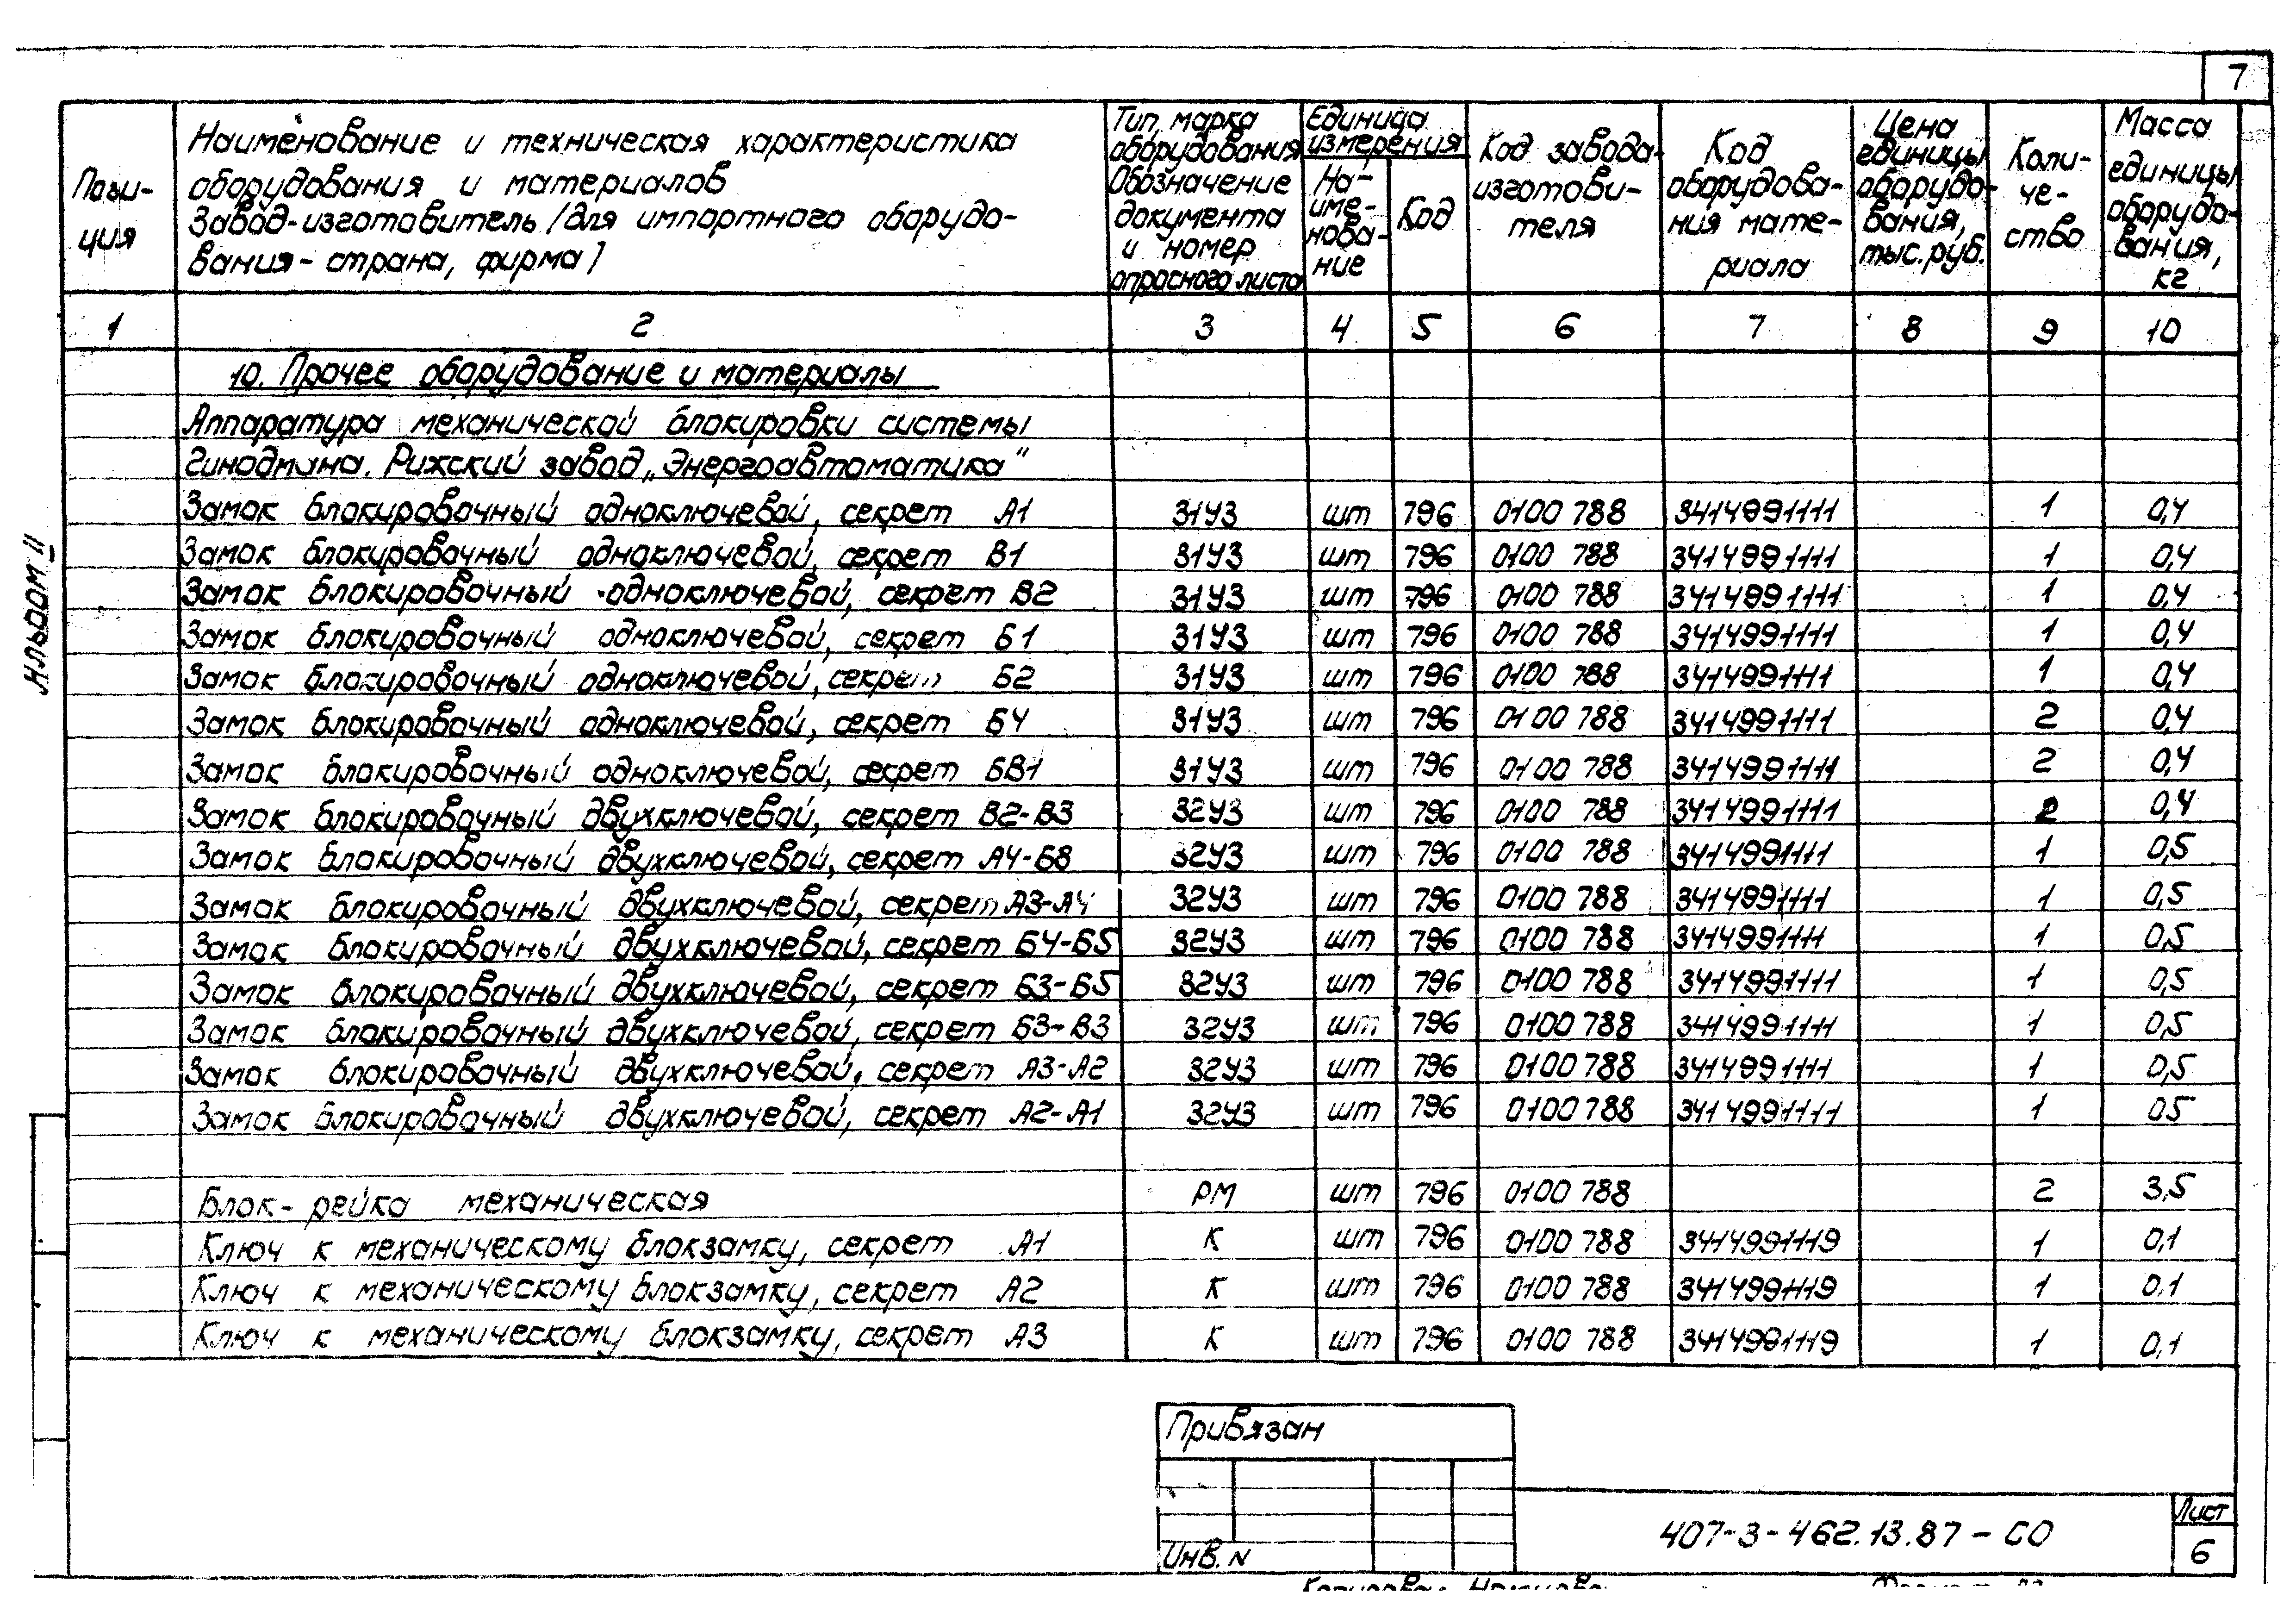 7
Альбом II
Пози-
ция
Наименование и техническая характеристика
оборудования и материалов
Завод-изготовитель /для импортного оборудо-
вания - страна, фирма/
Тип, марка
оборудования
Обозначение
документа
и номер
опросного листа
Единица
измерения
На-
име-
нова-
ние
Код
Код завода-
изготови-
теля
Код
оборудова-
ния мате-
риала
Цена
единицы
оборудо-
вания,
тыс.руб.
Коли-
че-
ство
Масса
единицы
оборудо-
вания,
кг
1 2 3 4 5 6 7 8 9 10
10. Прочее оборудование и материалы
Аппаратура механической блокировки системы
Гинодмана. Рижский завод „Энергоавтоматика"
Замок блокировочный одноключевой, секрет А1 З1У3 шт 796 0100 788 3414991111 1 0,4
Замок блокировочный одноключевой, секрет В1 З1У3 шт 796 0100 788 3414991111 1 0,4
Замок блокировочный одноключевой, секрет В2 З1У3 шт 796 0100 788 3414991111 1 0,4
Замок блокировочный одноключевой, секрет Б1 З1У3 шт 796 0100 788 3414991111 1 0,4
Замок блокировочный одноключевой, секрет Б2 З1У3 шт 796 0100 788 3414991111 1 0,4
Замок блокировочный одноключевой, секрет Б4 З1У3 шт 796 0100 788 3414991111 2 0,4
Замок блокировочный одноключевой, секрет БВ1 З1У3 шт 796 0100 788 3414991111 2 0,4
Замок блокировочный двухключевой, секрет В2-В3 З2У3 шт 796 0100 788 3414991111 2 0,4
Замок блокировочный двухключевой, секрет А4-Б8 З2У3 шт 796 0100 788 3414991111 1 0,5
Замок блокировочный двухключевой, секрет А3-А4 З2У3 шт 796 0100 788 3414991111 1 0,5
Замок блокировочный двухключевой, секрет Б4-Б5 З2У3 шт 796 0100 788 3414991111 1 0,5
Замок блокировочный двухключевой, секрет Б3-Б5 З2У3 шт 796 0100 788 3414991111 1 0,5
Замок блокировочный двухключевой, секрет Б3-В3 З2У3 шт 796 0100 788 3414991111 1 0,5
Замок блокировочный двухключевой, секрет А3-А2 З2У3 шт 796 0100 788 3414991111 1 0,5
Замок блокировочный двухключевой, секрет А2-А1 З2У3 шт 796 0100 788 3414991111 1 05
Блок-рейка механическая РМ шт 796 0100 788 2 3,5
Ключ к механическому блокзамку, секрет А1 К шт 796 0100 788 3414991119 1 0,1
Ключ к механическому блокзамку, секрет А2 К шт 796 0100 788 3414991119 1 0.1
Ключ к механическому блокзамку, секрет А3 К шт 796 0100 788 3414991119 1 0,1
Привязан
Инв. N
407-3-462.13.87-СО
Лист
6